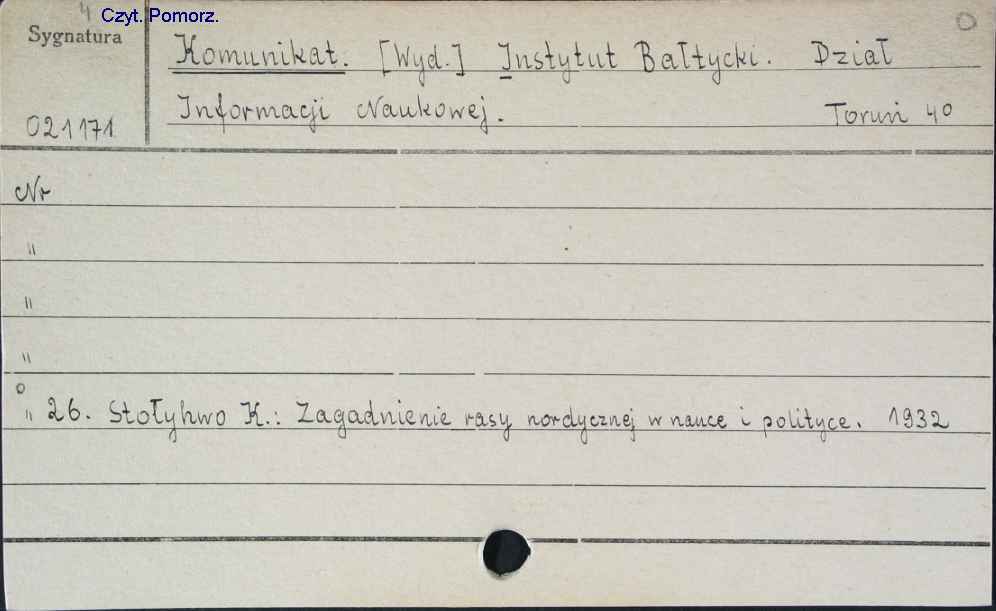 4 Czyt. Pomorz.
Sygnatura
021171
Komunikat. [Wyd.] Instytut Bałtycki. Dział
Informacji Naukowej. Toruń 4º
O
Nr
"
"
"
o
" 26. Stołyhwo K.: Zagadnienie rasy nordycznej w nauce i polityce. 1932